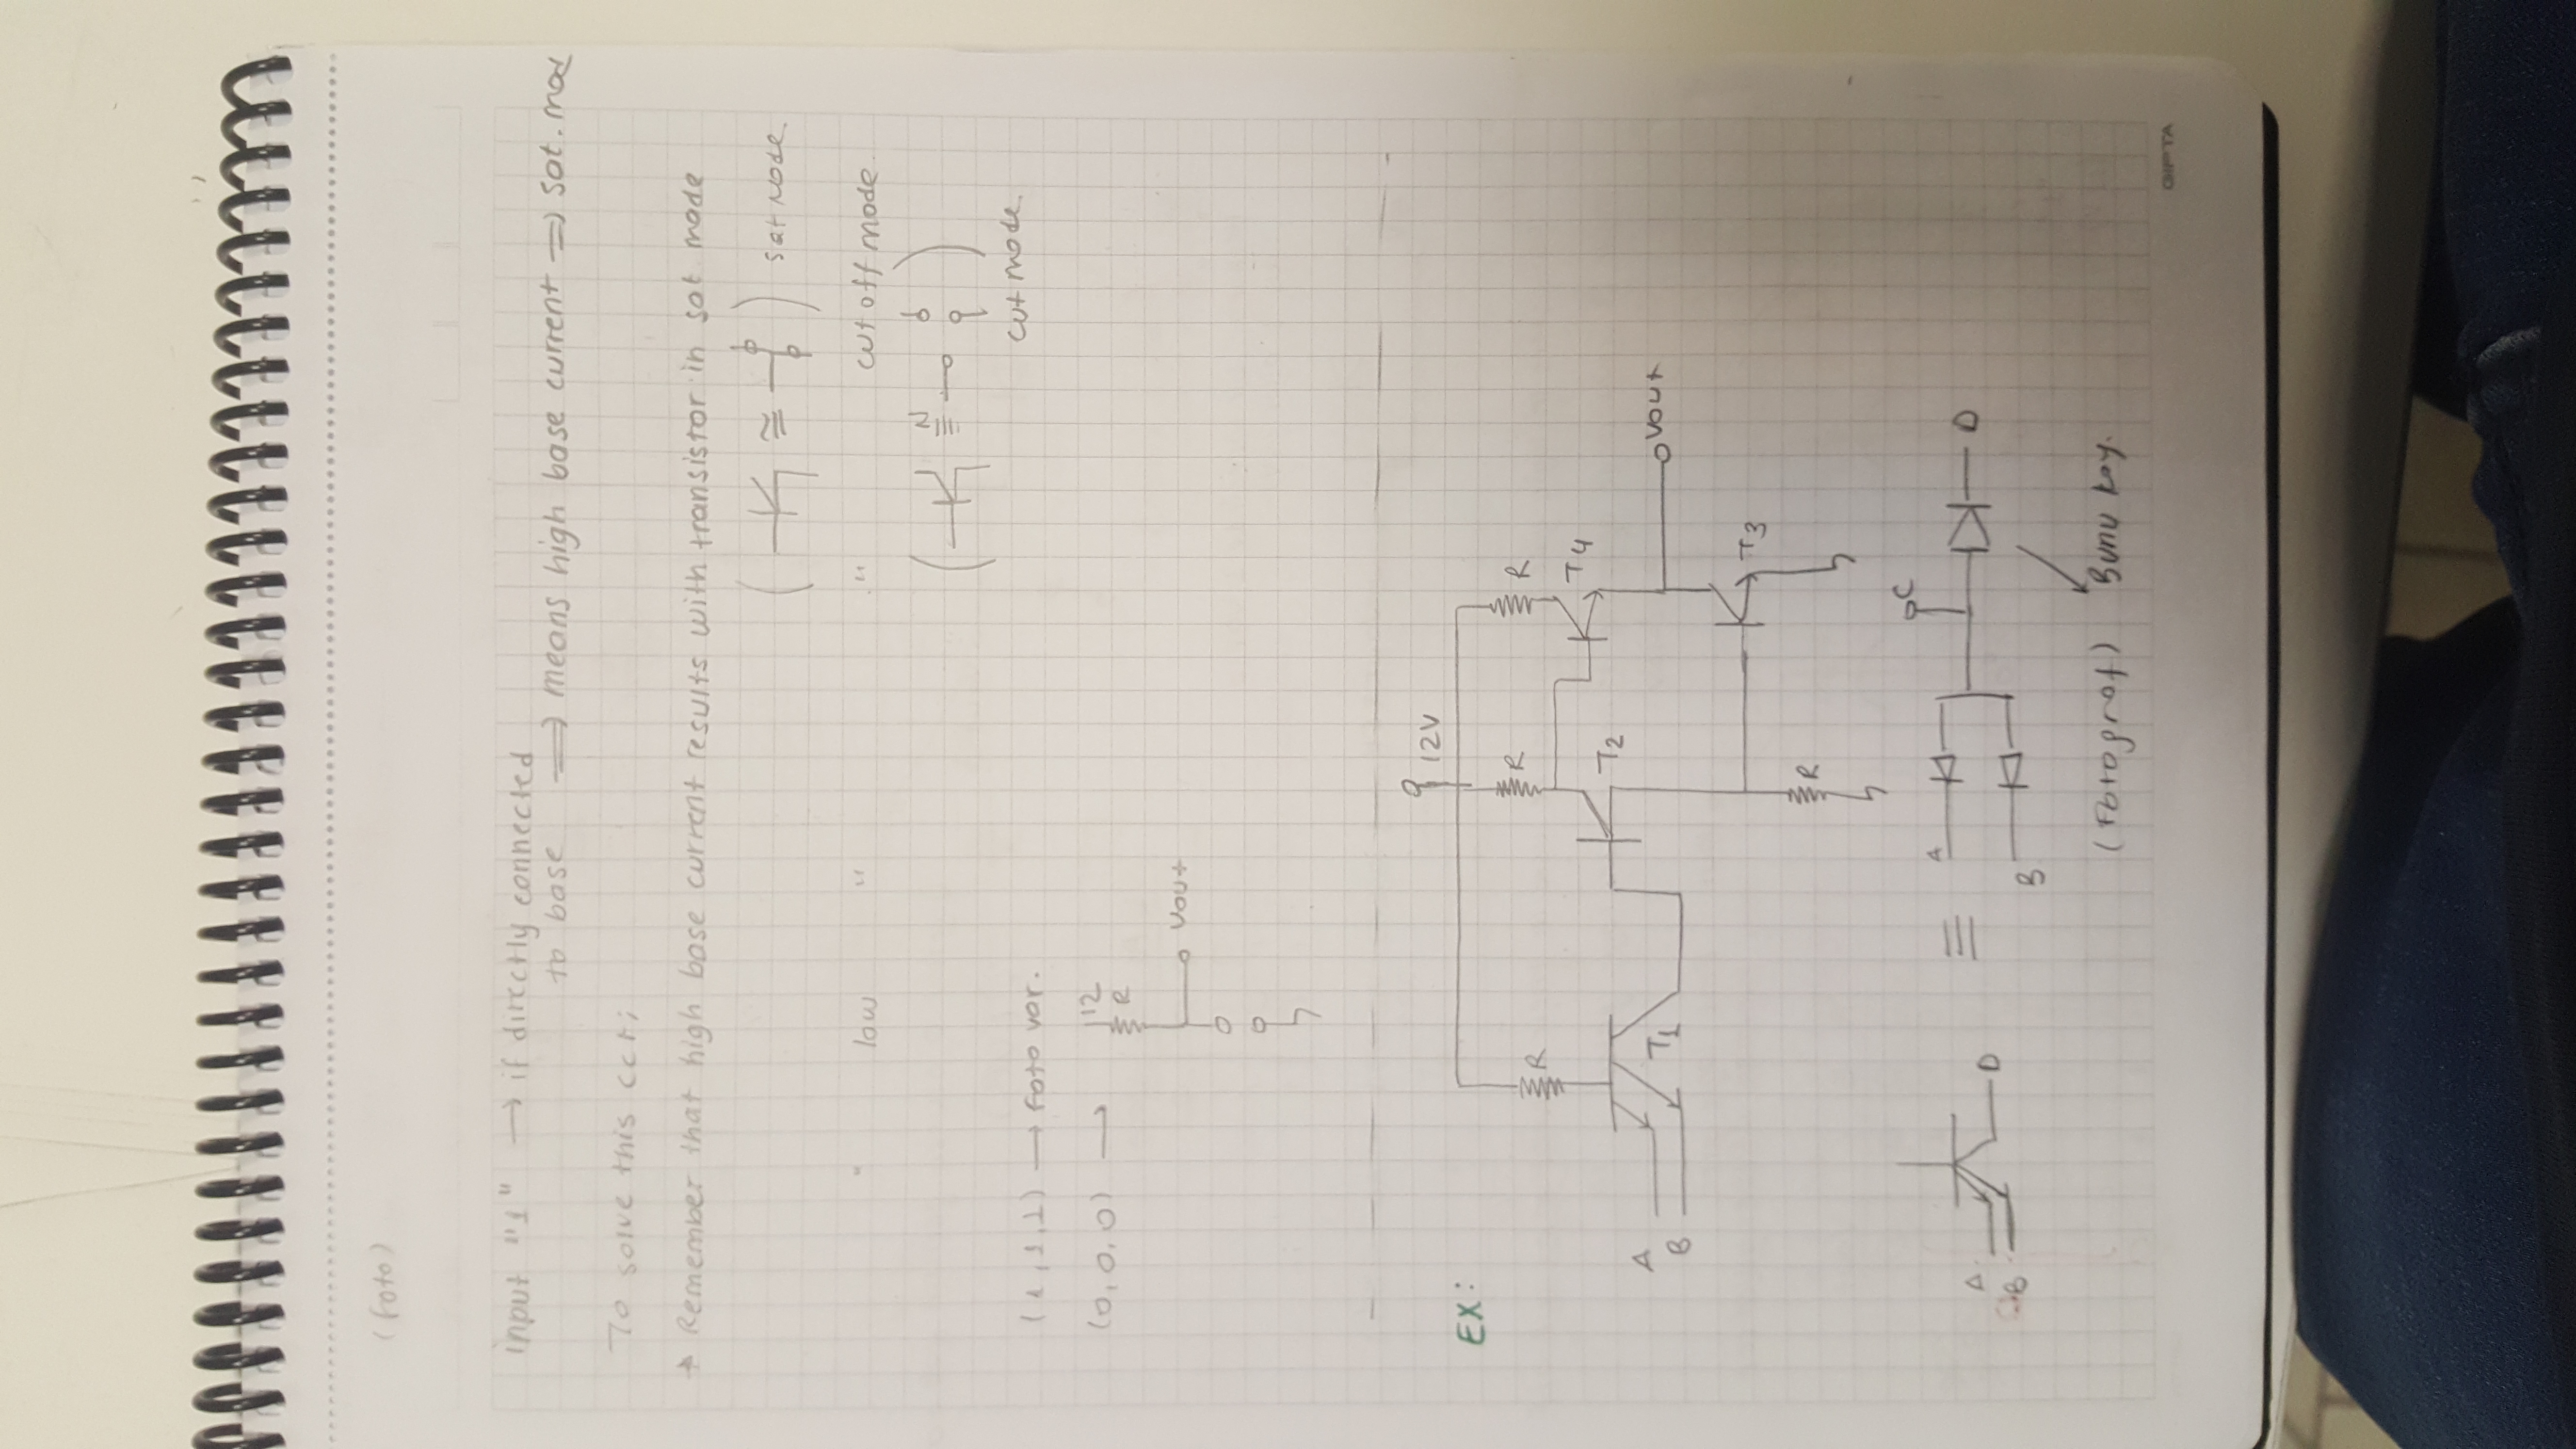 (foto)
input "1" → if directly connected
to base ⟹ means high base current ⟹ sat. mod
To solve this cct;
* Remember that high base current results with transistor in sat mode
( ≅ ) sat mode
" low " " cut off mode
( ≅ )
cut mode
(1,1,1) → foto var.
(0,0,0) →
12
R
Vout
EX:
12V
R
R
R
T4
T2
A
B
T1
Vout
T3
R
A
B
D
≡
A
B
C
D
(Fotograf) Bunu koy.
GIPTA